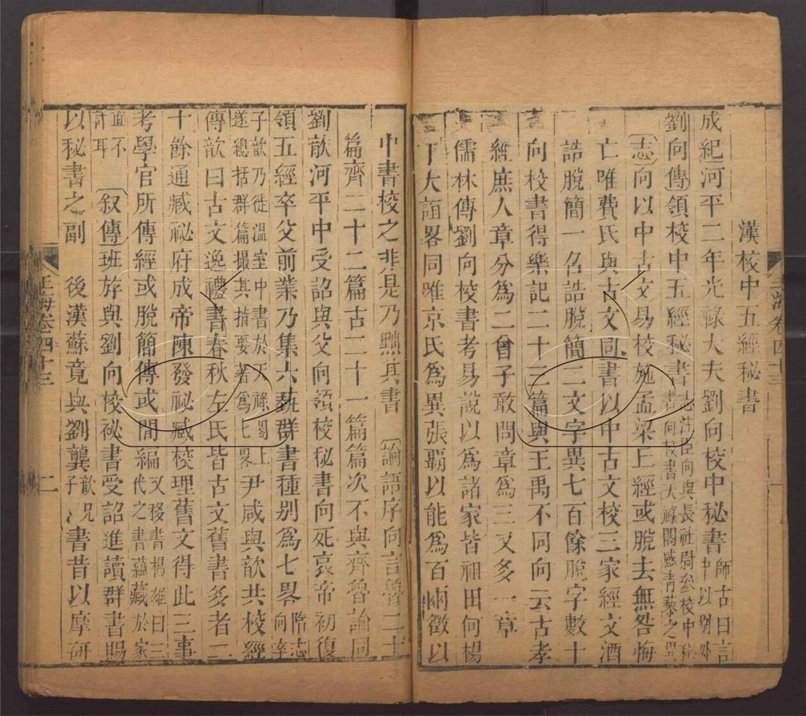 漢校中五經秘書
成紀河平二年光祿大夫劉向校中秘書師古曰言中以別外
劉向傳領校中五經秘書
志向以中古文易校施孟梁丘經或脫去無咎悔
亡唯費氏與古文同書以中古文校三家經文酒
誥脫簡一召誥脫簡二文字異七百餘脫字數十
向校書得樂記二十三篇與王禹不同向云古孝
經庶人章分為二曾子敢問章為三又多一章
儒林傳劉向校書考易說以為諸家皆祖田何楊
丁大誼畧同唯京氏為異張霸以能為百兩徵以
中書校之非是乃黜其書論語序向言魯二十
篇齊二十二篇古二十一篇篇次不與齊魯論同
劉歆河平中受詔與父向領校秘書向死哀帝初復
領五經卒父前業乃集六藝群書種別為七畧隋志向卒
子歆乃徙溫室中書於天祿閣上遂總括群篇撮其指要著為七畧尹咸與歆共校經
傳歆曰古文逸禮書春秋左氏皆古文舊書多者二
十餘通臧祕府成帝陳發祕臧校理舊文得此三事
考學官所傳經或脫簡傳或間編又移書楊雄曰三代之書蘊藏於家
直不計耳叙傳班斿與劉向校祕書受詔進讀群書賜
以秘書之副後漢蘇竟與劉龔歆兄子書昔以摩研
玉海卷四十三
二